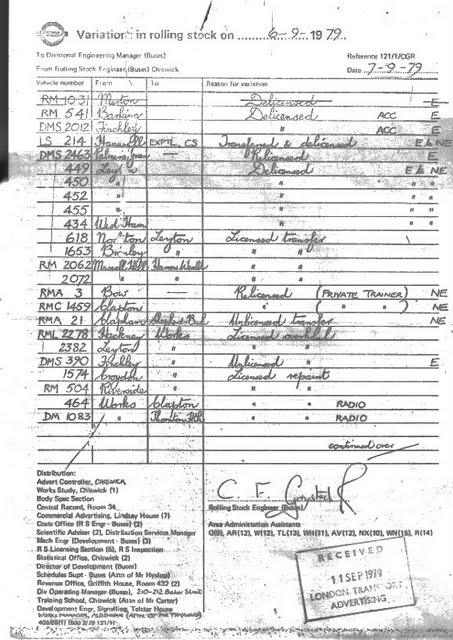 Variation in rolling stock on 6-9-1979
To Divisional Engineering Manager (Buses) Reference 121/1/CGR
From Rolling Stock Engineer (Buses) Chiswick Date 7-9-79
Vehicle number From To Reason for variation
RM 1031 Merton — Delicensed E
RM 541 Barking Delicensed ACC E
DMS 2012 Finchley " ACC E
LS 214 Hanwell EXPTL. CS Transferred & delicensed E & NE
DMS 2463 Palmers Green — Relicensed E
449 Leyton Delicensed E & NE
450 " " " "
452 " " " "
455 " " "
434 West Ham " " "
618 Norton Leyton Licensed transfer "
1653 Bromley " " " "
RM 2062 Muswell Hill Harrow Weald " " "
2072 " " " "
RMA 3 Bow — Relicensed (PRIVATE TRAINER) NE
RMC 1459 Clapton — " ( " " ) NE
RMA 21 Clapham Shepherds Bush Unlicensed transfer NE
RML 2278 Hackney Works Licensed overhaul
2382 Leyton " " "
DMS 390 Finchley " Unlicensed " E
1574 Croydon " Licensed repaint
RM 504 Riverside " " "
464 Works Clapton " " RADIO
DM 1083 " Thornton Hth " " RADIO
continued over
Distribution:
Advert Controller, CHISWICK
Works Study, Chiswick (1)
Body Spec Section
Central Record, Room 34
Commercial Advertising, Lindsay House (7)
Costs Office (R S Engr - Buses) (2)
Scientific Adviser (2), Distribution Services Manager
Mech Engr (Development - Buses) (3)
R S Licensing Section (5), R S Inspection
Statistical Office, Chiswick (2)
Director of Development (Buses)
Schedules Supt - Buses (Attn of Mr Hyslop)
Revenue Office, Griffith House, Room 432 (2)
Div Operating Manager (Buses), 210-212 Baker Street
Training School, Chiswick (Attn of Mr Carter)
Development Engr, Signalling, Telstar House
WORKS MANAGER, ALDENHAM
C. F.
Rolling Stock Engineer (Buses)
Area Administation Assistants
Q(9), AR(12), W(12), TL(13), WH(11), AV(12), NX(10), WN(15), R(14)
RECEIVED
11 SEP 1979
LONDON TRANSPORT
ADVERTISING